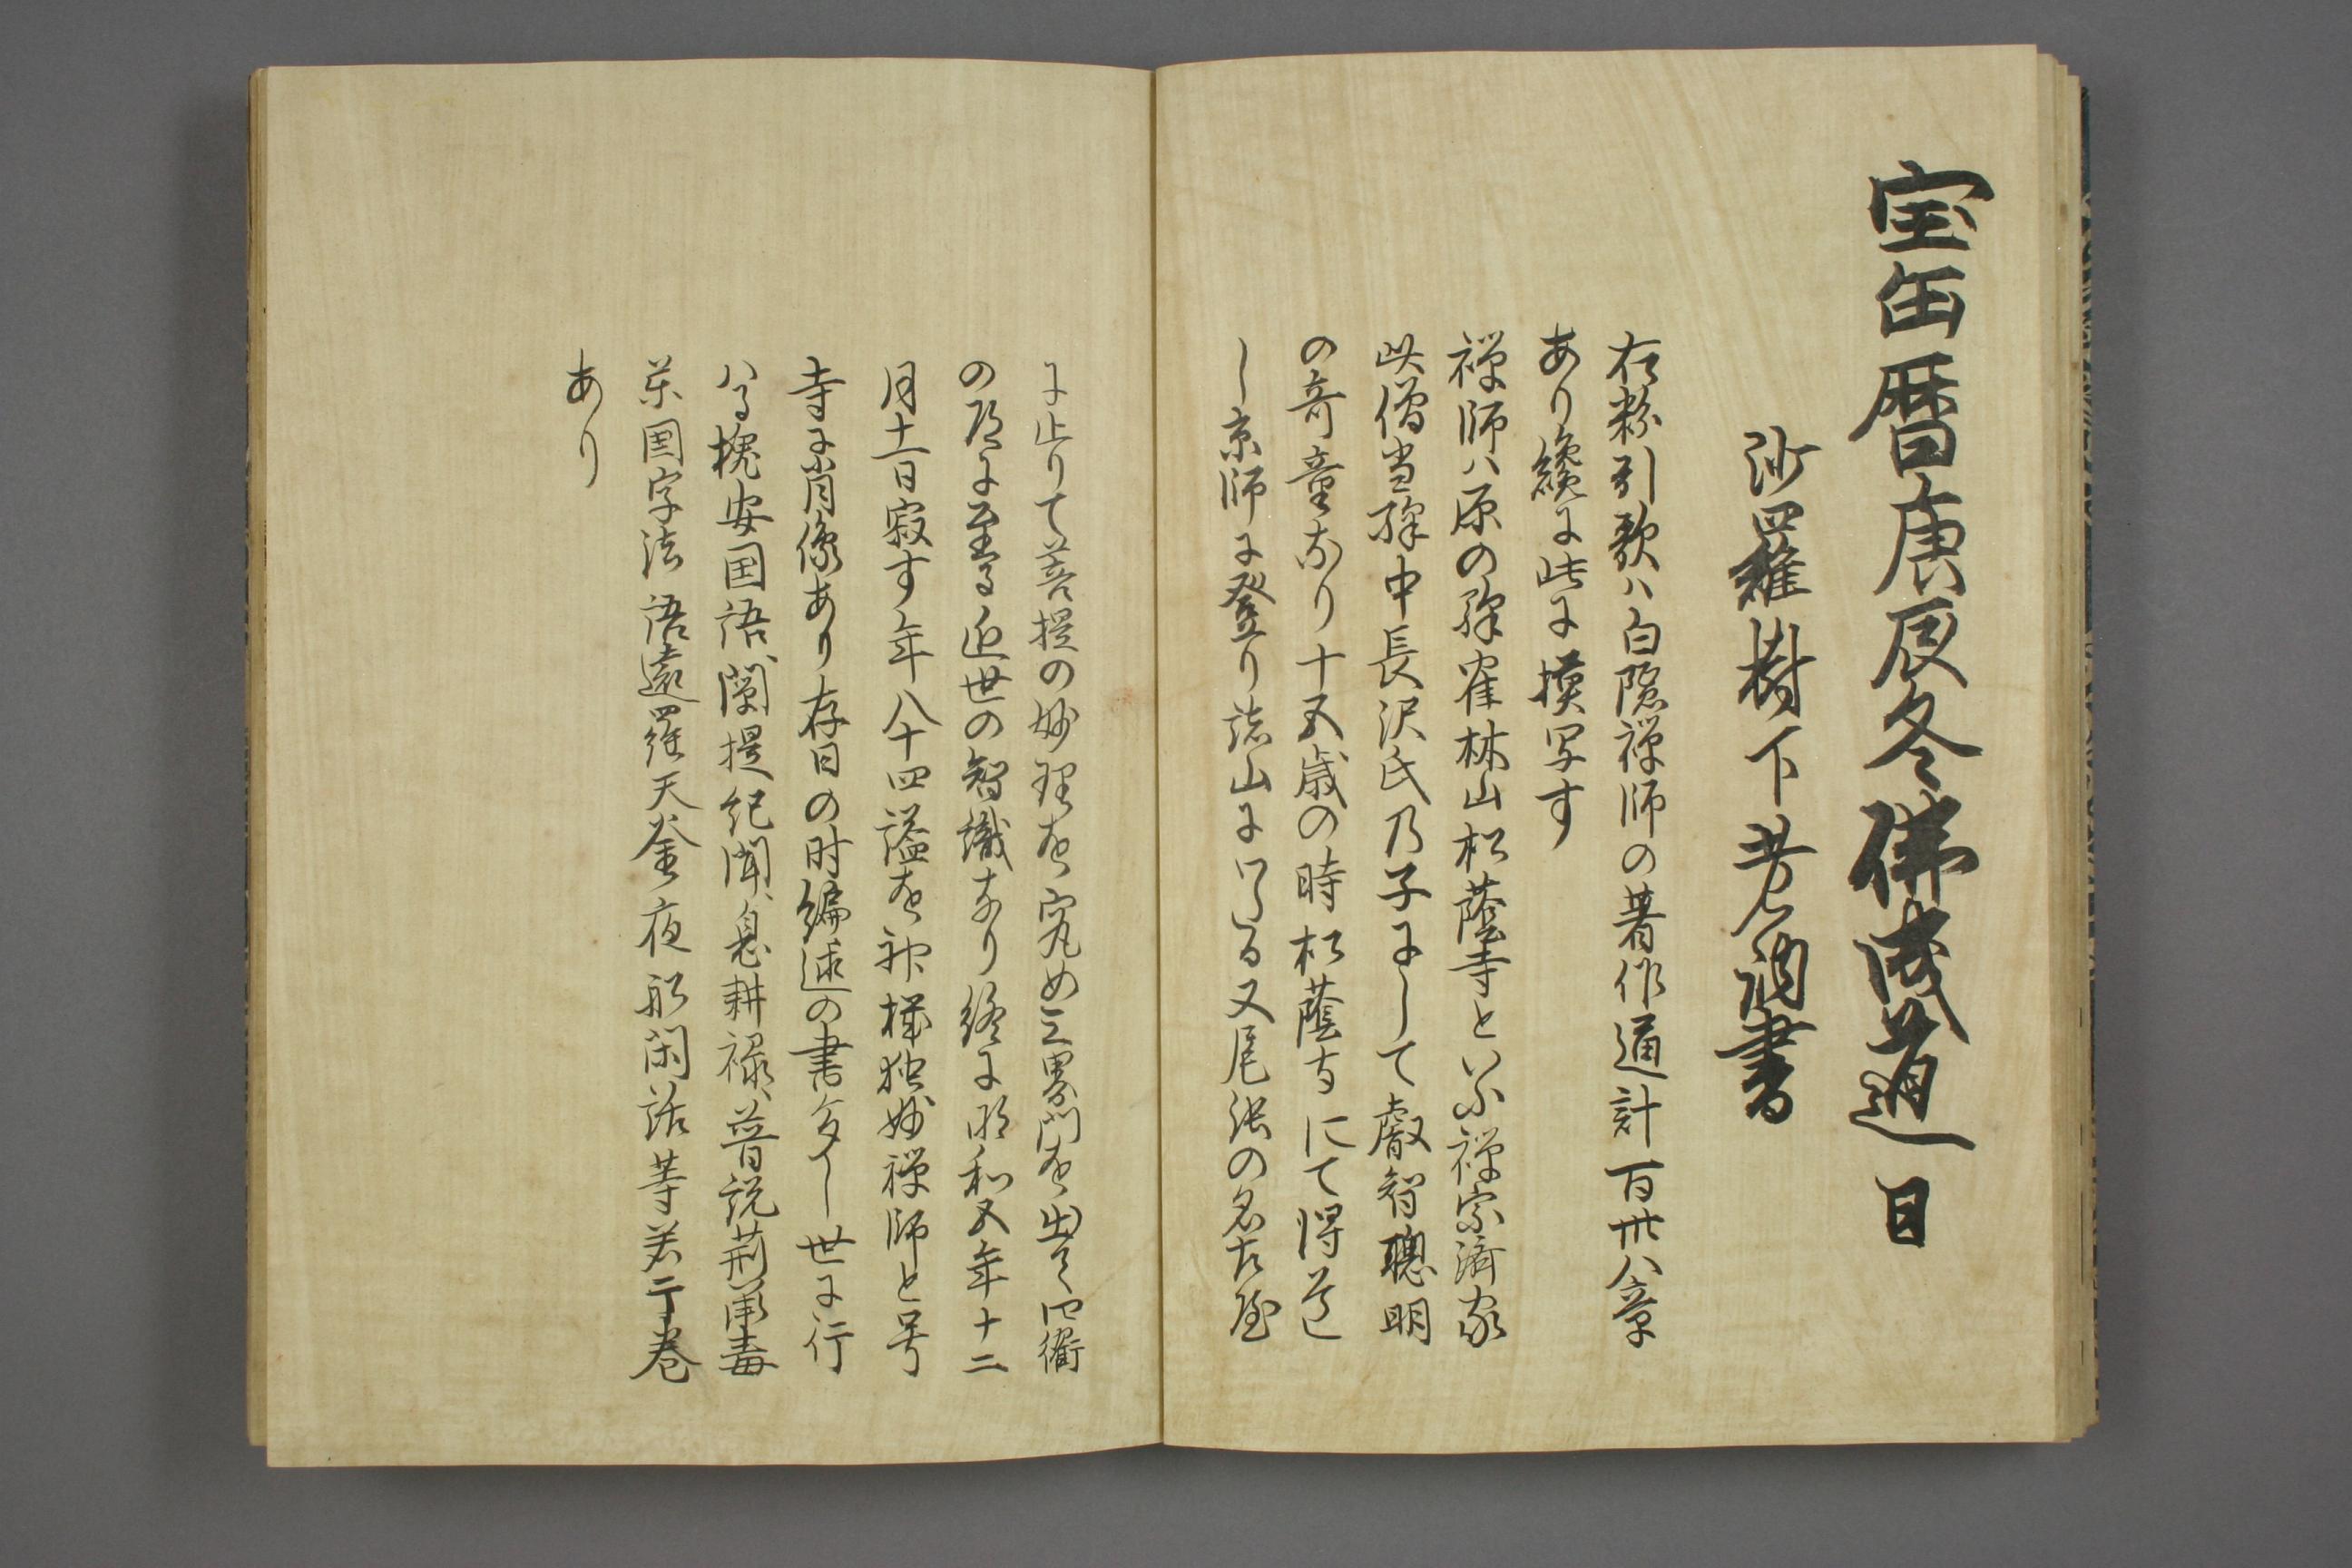 宝缶暦庚辰冬佛成道日
沙羅樹下老衲書
右粉引歌ハ白隠禅師の著作通計百卅八章
あり纔に此に摸写す
禅師ハ原の駅寉林山松蔭寺といふ禅宗済家
此僧当駅中長沢氏乃子にして叡智聰明
の奇童なり十五歳の時松蔭寺にて得道
し京師に登り諸山に又尾張の名古屋
に止りて菩提の妙理を究め三界門を出て四衢
の道に至る近世の智識なり終に明和五年十二
月十一日寂す年八十四謚を神機独妙禅師と号
寺に肖像あり存日の时編述の書多し世に行
ハる槐安国語、闡提紀聞、息耕禄、普説荆叢毒
蘂国字法語遠羅天釜夜舩閑話等若干巻
あり